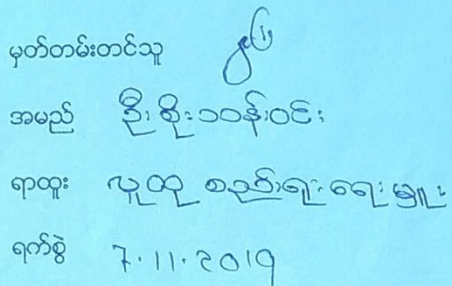 မှတ်တမ်းတင်သူ
အမည် ဦးစိုးသန်းဝင်း
ရာထူး လူထု စည်းရုံးရေးမှူး
ရက်စွဲ 7.11.2019